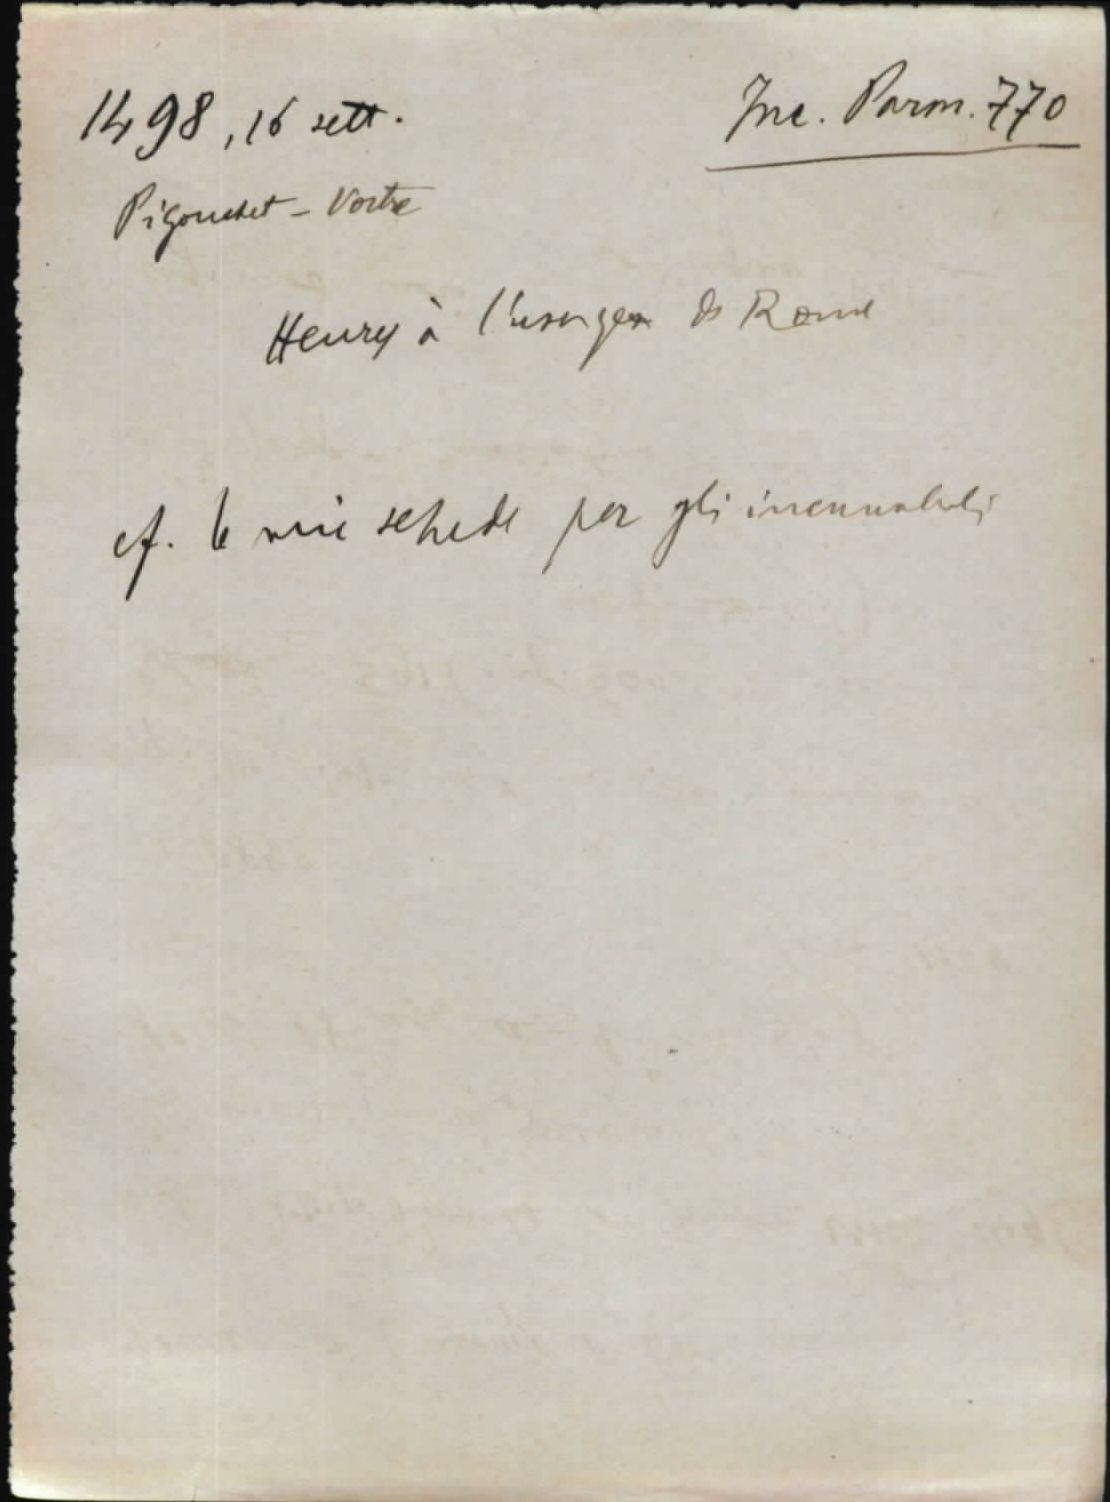 1498, 16 sett.
Inc. Parm. 770
Pigouchet - Vostre
Heures à l'usaige de Rome
cf. le mie schede per gli incunaboli